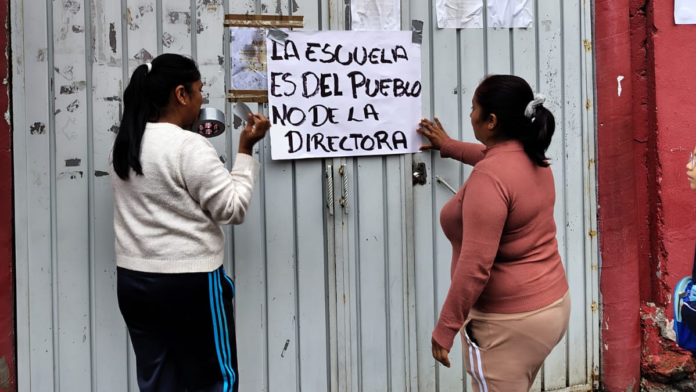 LA ESCUELA
ES DEL PUEBLO
NO DE LA
DIRECTORA